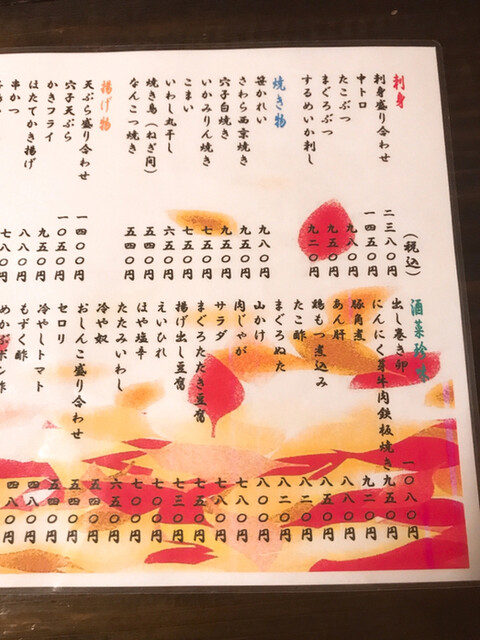 刺身
(税込)
刺身盛り合わせ 二三八〇円
中トロ 一四五〇円
たこぶつ 九八〇円
まぐろぶつ 九五〇円
するめいか刺し 九二〇円
焼き物
笹かれい 九八〇円
さわら西京焼き 九五〇円
穴子白焼き 九五〇円
いかみりん焼き 七五〇円
こまい 五五〇円
いわし丸干し 六五〇円
焼き鳥(ねぎ間) 五四〇円
なんこつ焼き 五四〇円
揚げ物
天ぷら盛り合わせ 一四〇〇円
穴子天ぷら 一〇五〇円
かきフライ 九五〇円
ほたてかき揚げ 八八〇円
串かつ 七八〇円
酒菜珍味
出し巻き卵
にんにく芽牛肉鉄板焼き 一〇八〇円
豚角煮 九二〇円
あん肝 八八〇円
鶏もつ煮込み 八五〇円
たこ酢 八二〇円
まぐろぬた 八二〇円
山かけ 七八〇円
肉じゃが 七八〇円
サラダ
まぐろたたき豆腐 七五〇円
揚げ出し豆腐 七三〇円
えいひれ 七〇〇円
ほや塩辛
たたみいわし 六五〇円
冷や奴 五四〇円
おしんこ盛り合わせ 五四〇円
セロリ 五四〇円
冷やしトマト 四八〇円
もずく酢 四八〇円
めかぶポン酢